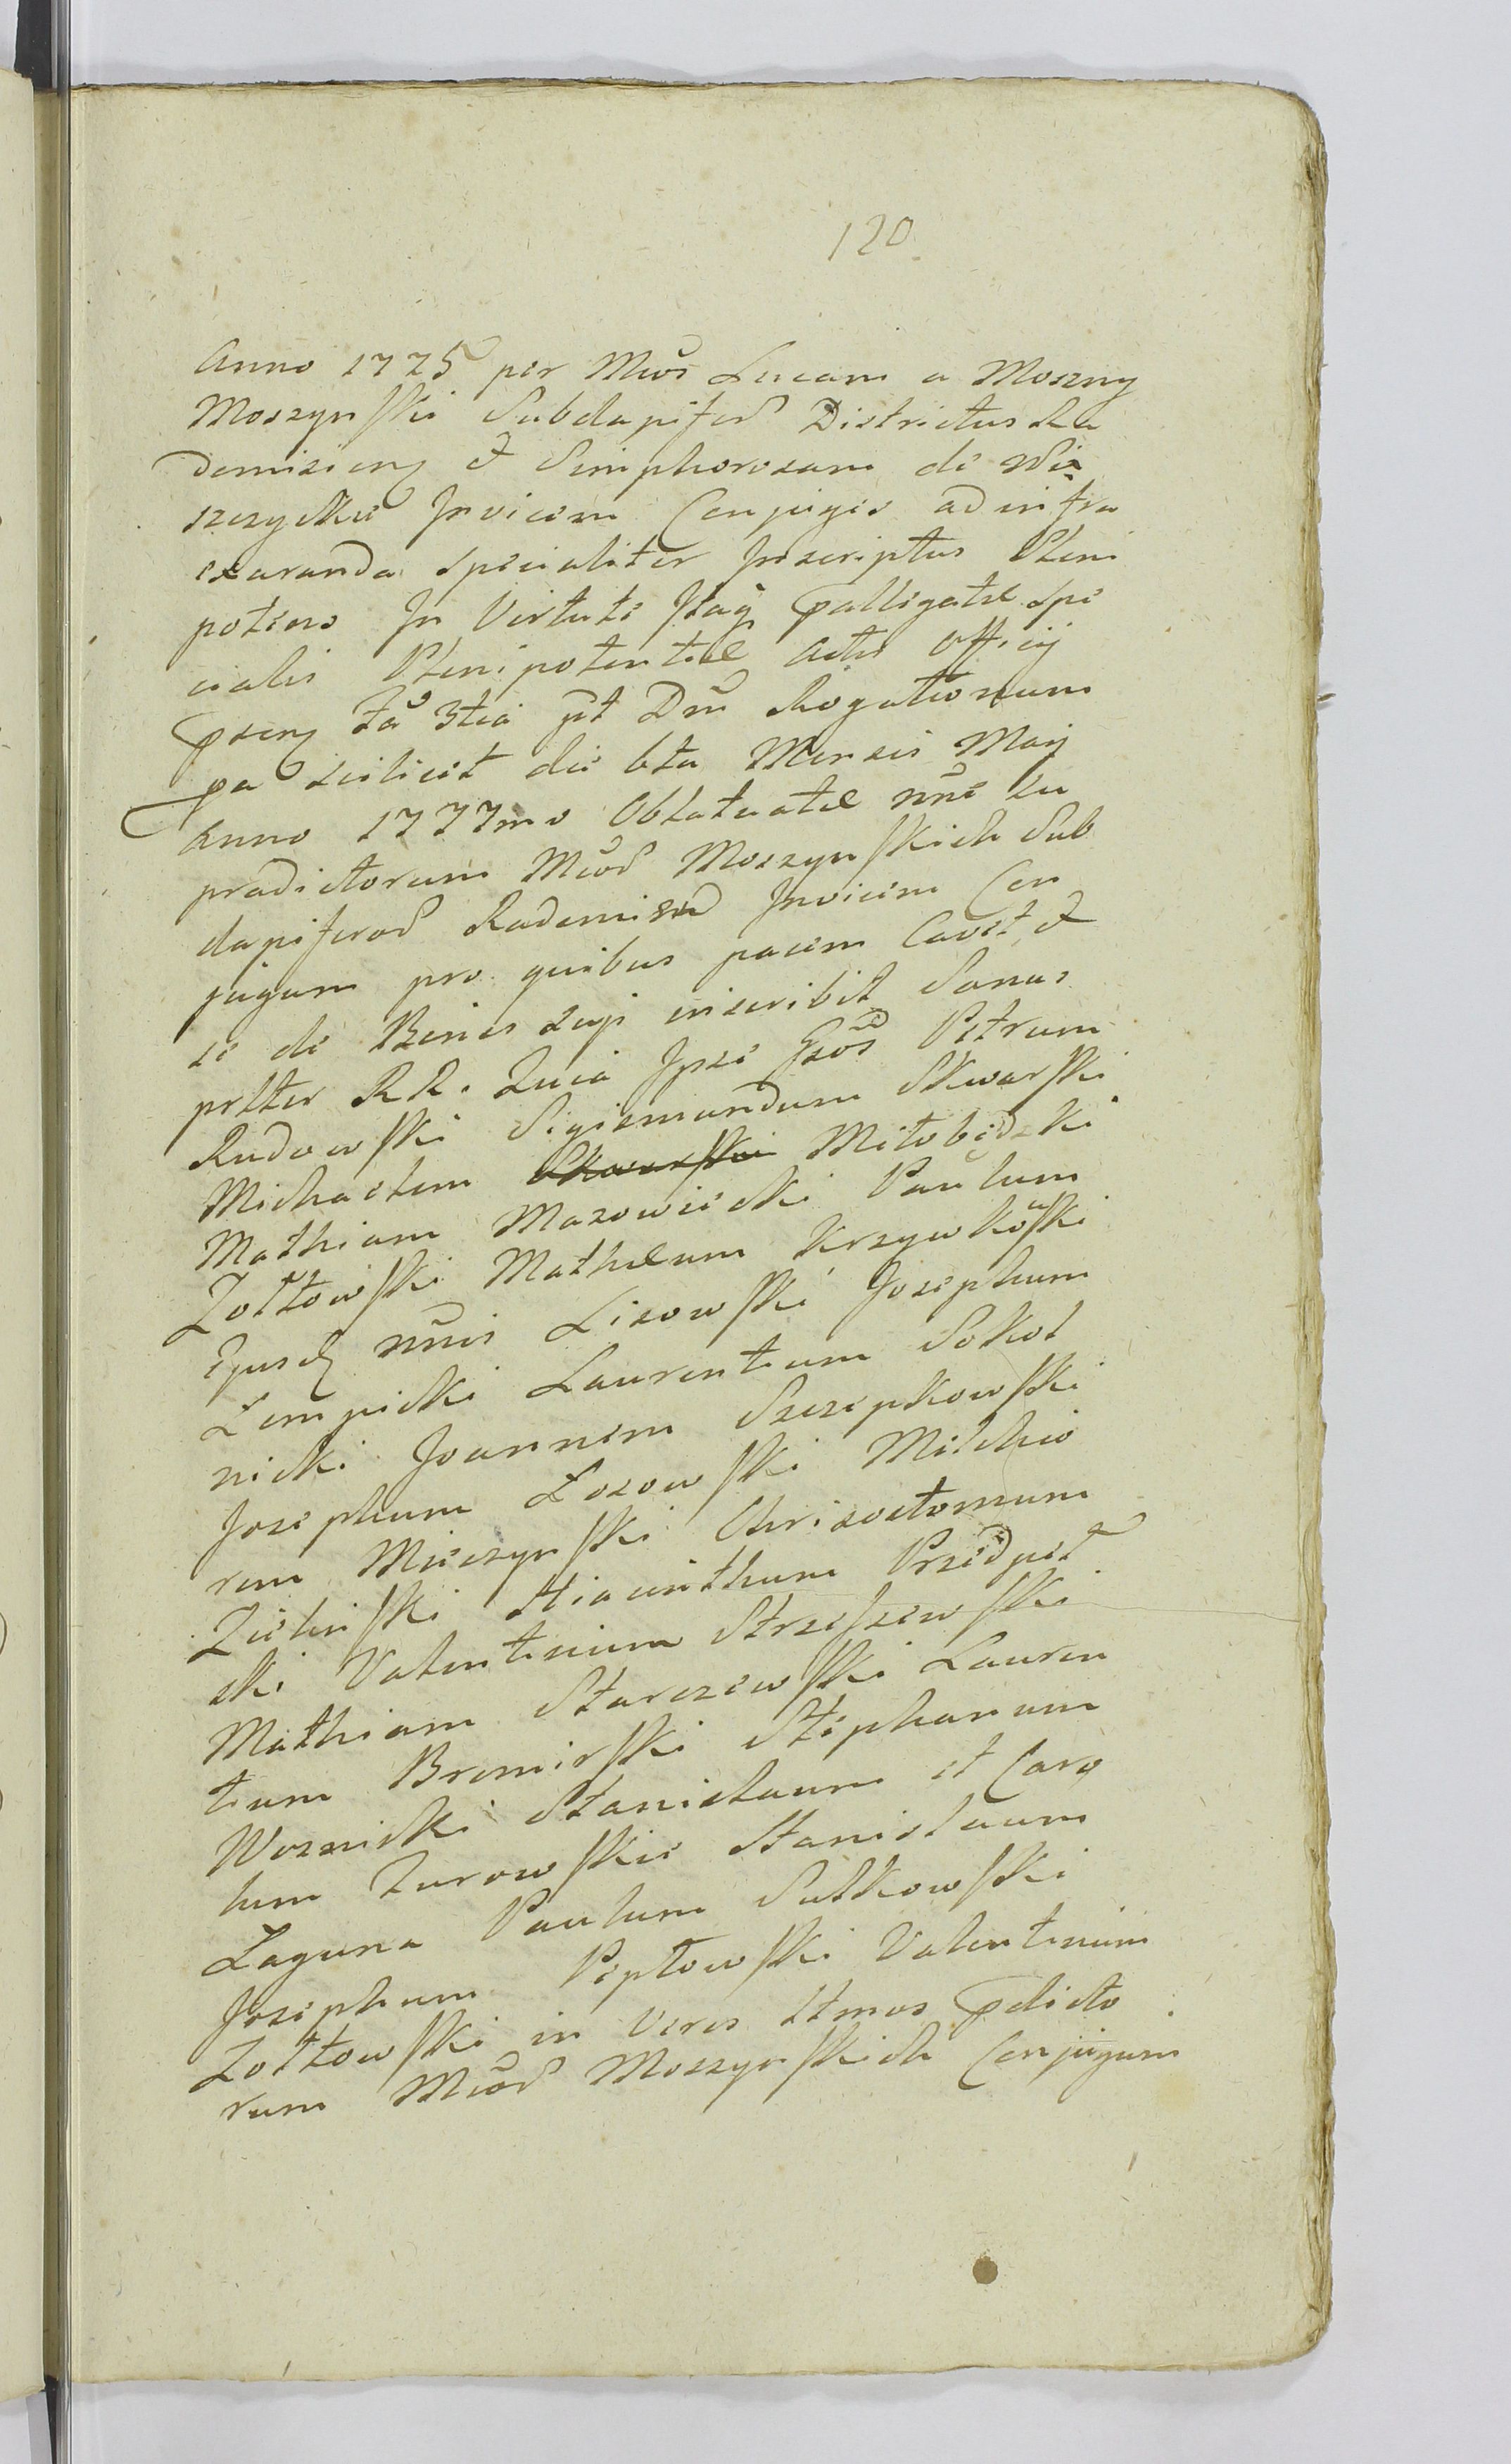 120
Anno 1775 per Mcos Lucam a Moszny
Moszynski Subdapifer Districtus Ra
domisien et Simphorosam de Wie
szczyckie Invicem Conjuges ad infra
exaranda specialiter Inscriptus Pleni
potens In Virtute speci
cialis Plenipotentiæ Actis Officij
pntem Fa 3tia pt Dm Rogationum
pa scilicet die 6ta Mensis Maij
Anno 1777mo Oblatuatæ nne su
prædictorum Mcor Moszynskich Sub
dapiferor Radomisien Invicem Con
jugum pro quibus pacem Cavet et
se de Bonis inscribit Sanus
prtter RR. Zucia Ipse Gsos Petrum
Rudowski Sigismundum Skwarski
Michaelem Skwarski Miłobędzki
Mathiam Mazowiecki Paulum
Zołtowski Mathæum Krzywkowski
Ejusd nnis Lisowski Josephum
Łempicki Laurentium Sokol
nicki Joannem Szczepkowski
Josephum Łosowski Melchio
rem Mieczynski Chrisostomum
Zielinski Hiacinthum Przedpeł
ski Valentinum Strzeszewski
Mathiam Starczewski Lauren
tium Bromirski Stephanum
Woznicki Stanislaum et Caro
lum Zurowskie Stanislaum
Łaguna Paulum Sutkowski
Josephum Pepłowski Valentinum
Zołtowski in Veros Ltmos pdicto
rum Mcor Moszynskich Conjugum